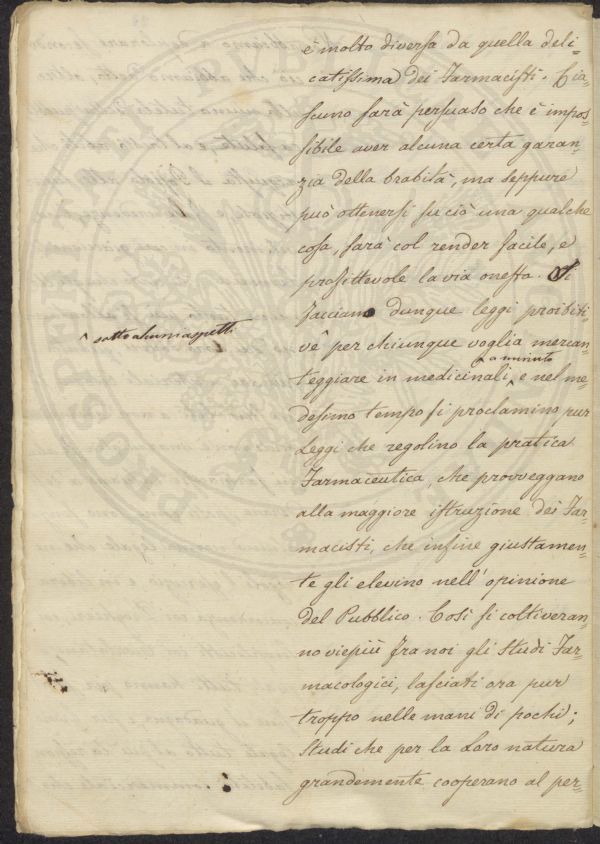 è molto diversa da quella deli-
catissima dei Farmacisti. Cia-
scuno sarà persuaso che è impos-
sibile aver alcuna certa garan-
zia della brabità, ma seppure
può ottenersi su ciò una qualche
cosa, sarà col render facile, e
profittevole la via onesta. Si
facciano dunque leggi proibiti-
ve per chiunque voglia mercan-
^ sotto alcun aspetto
a minuto
teggiare in medicinali, ^ e nel me-
desimo tempo si proclamino pur
Leggi che regolino la pratica
Farmaceutica, che provveggano
alla maggiore istruzione dei Far-
macisti, che infine giustamen-
te gli elevino nell'opinione
del Pubblico. Così si coltiveran-
no viepiù fra noi gli Studi Far-
macologici, lasciati ora pur
troppo nelle mani di pochi;
Studi che per la Loro natura
grandemente cooperano al per-